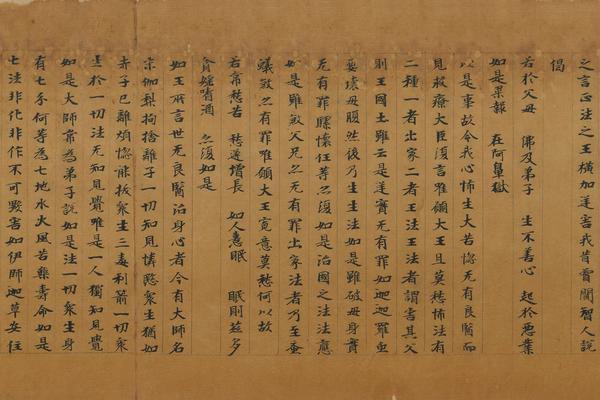 之言正法之王橫加逆害我昔曾聞智人說
偈
若於父母　佛及弟子　生不善心　起於惡業
如是果報　在阿鼻獄
以是事故令我心怖生大苦惱无有良醫而
見救療大臣復言唯願大王且莫愁怖法有
二種一者出家二者王法王法者謂害其父
則王國土雖云是逆實无有罪如迦迦羅虫
要壞母腹然後乃生生法如是雖破母身實
无有罪騾懷任等亦復如是治國之法法應
如是雖煞父兄亦无有罪出家法者乃至蚉
蟻煞亦有罪唯願大王寬意莫愁何以故
若常愁苦　愁遂增長　如人憙眠　眠則滋多
貪婬嗜酒　亦復如是
如王所言世无良醫治身心者今有大師名
末伽梨拘捨離子一切知見憐愍衆生猶如
赤子已離煩惱能拔衆生三毒利箭一切衆
生於一切法无知見覺唯是一人獨知見覺
如是大師常為弟子說如是法一切衆生身
有七分何等為七地水火風苦樂壽命如是
七法非化非作不可毀害如伊師迦草安住